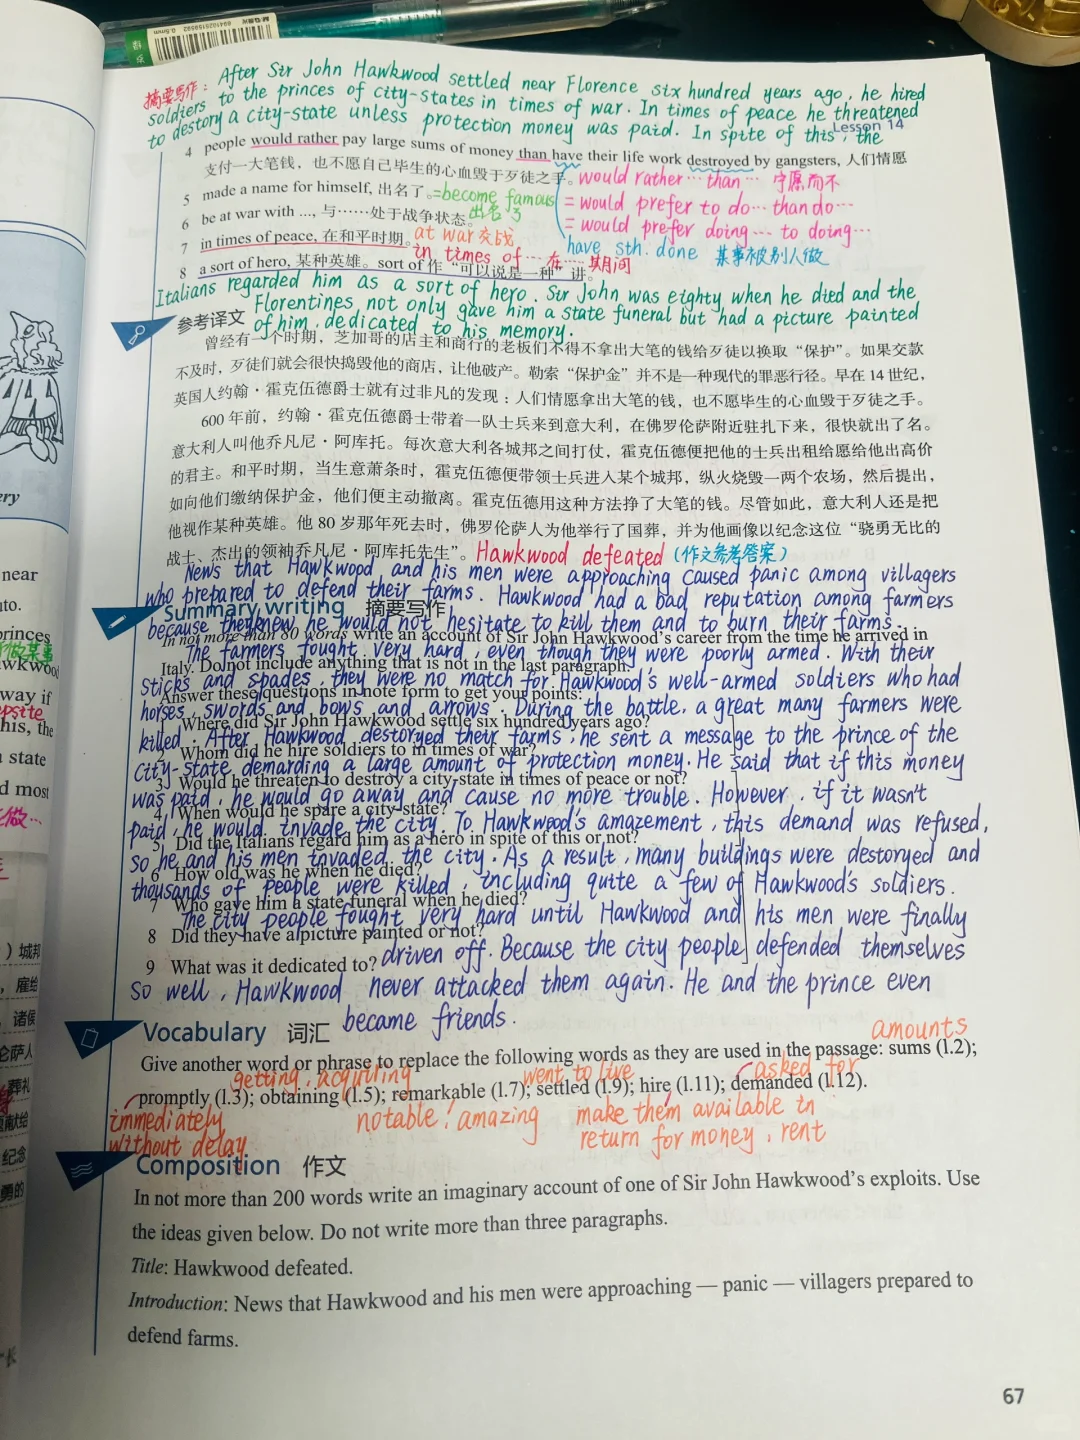 摘要写作: After Sir John Hawkwood settled near Florence six hundred years ago, he hired
soldiers to the princes of city-states in times of war. In times of peace he threatened
to destory a city-state unless protection money was paid. In spite of this, the
Lesson 14
4 people would rather pay large sums of money than have their life work destroyed by gangsters, 人们情愿
支付一大笔钱，也不愿自己毕生的心血毁于歹徒之手。
would rather… than… 宁愿而不
5 made a name for himself, 出名了。=become famous
出名了
= would prefer to do… than do…
6 be at war with ..., 与……处于战争状态。
= would prefer doing… to doing…
at war 交战
7 in times of peace, 在和平时期。
have sth. done 某事被别人做
in times of … 在……期间
8 a sort of hero, 某种英雄。sort of 作“可以说是一种”讲。
Italians regarded him as a sort of hero. Sir John was eighty when he died and the
Florentines not only gave him a state funeral but had a picture painted
of him dedicated to his memory.
参考译文
曾经有一个时期，芝加哥的店主和商行的老板们不得不拿出大笔的钱给歹徒以换取“保护”。如果交款
不及时，歹徒们就会很快捣毁他的商店，让他破产。勒索“保护金”并不是一种现代的罪恶行径。早在 14 世纪，
英国人约翰·霍克伍德爵士就有过非凡的发现：人们情愿拿出大笔的钱，也不愿毕生的心血毁于歹徒之手。
600 年前，约翰·霍克伍德爵士带着一队士兵来到意大利，在佛罗伦萨附近驻扎下来，很快就出了名。
意大利人叫他乔凡尼·阿库托。每次意大利各城邦之间打仗，霍克伍德便把他的士兵出租给愿给他出高价
的君主。和平时期，当生意萧条时，霍克伍德便带领士兵进入某个城邦，纵火烧毁一两个农场，然后提出，
如向他们缴纳保护金，他们便主动撤离。霍克伍德用这种方法挣了大笔的钱。尽管如此，意大利人还是把
他视作某种英雄。他 80 岁那年死去时，佛罗伦萨人为他举行了国葬，并为他画像以纪念这位“骁勇无比的
战士、杰出的领袖乔凡尼·阿库托先生”。
Hawkwood defeated (作文参考答案)
News that Hawkwood and his men were approaching caused panic among villagers
who prepared to defend their farms. Hawkwood had a bad reputation among farmers
Summary writing 摘要写作
because they knew he would not hesitate to kill them and to burn their farms.
In not more than 80 words write an account of Sir John Hawkwood's career from the time he arrived in
The farmers fought very hard, even though they were poorly armed. With their
Italy. Do not include anything that is not in the last paragraph.
sticks and spades, they were no match for Hawkwood's well-armed soldiers who had
Answer these questions in note form to get your points:
horses, swords and bows and arrows. During the battle, a great many farmers were
1 Where did Sir John Hawkwood settle six hundred years ago?
killed. After Hawkwood destoryed their farms, he sent a message to the prince of the
2 Whom did he hire soldiers to in times of war?
city-state demarding a large amount of protection money. He said that if this money
3 Would he threaten to destroy a city-state in times of peace or not?
was paid, he would go away and cause no more trouble. However, if it wasn't
4 When would he spare a city-state?
paid, he would invade the city. To Hawkwood's amazement, this demand was refused,
5 Did the Italians regard him as a hero in spite of this or not?
so he and his men invaded the city. As a result, many buildings were destoryed and
6 How old was he when he died?
thousands of people were killed, including quite a few of Hawkwood's soldiers.
7 Who gave him a state funeral when he died?
The city people fought very hard until Hawkwood and his men were finally
8 Did they have a picture painted or not?
driven off. Because the city people defended themselves
9 What was it dedicated to?
so well, Hawkwood never attacked them again. He and the prince even
became friends.
Vocabulary 词汇
amounts
Give another word or phrase to replace the following words as they are used in the passage: sums (l.2);
getting, acquiring
went to live
asked for
promptly (l.3); obtaining (l.5); remarkable (l.7); settled (l.9); hire (l.11); demanded (l.12).
immediately
without delay
notable, amazing
make them available in
return for money, rent
Composition 作文
In not more than 200 words write an imaginary account of one of Sir John Hawkwood's exploits. Use
the ideas given below. Do not write more than three paragraphs.
Title: Hawkwood defeated.
Introduction: News that Hawkwood and his men were approaching — panic — villagers prepared to
defend farms.
67